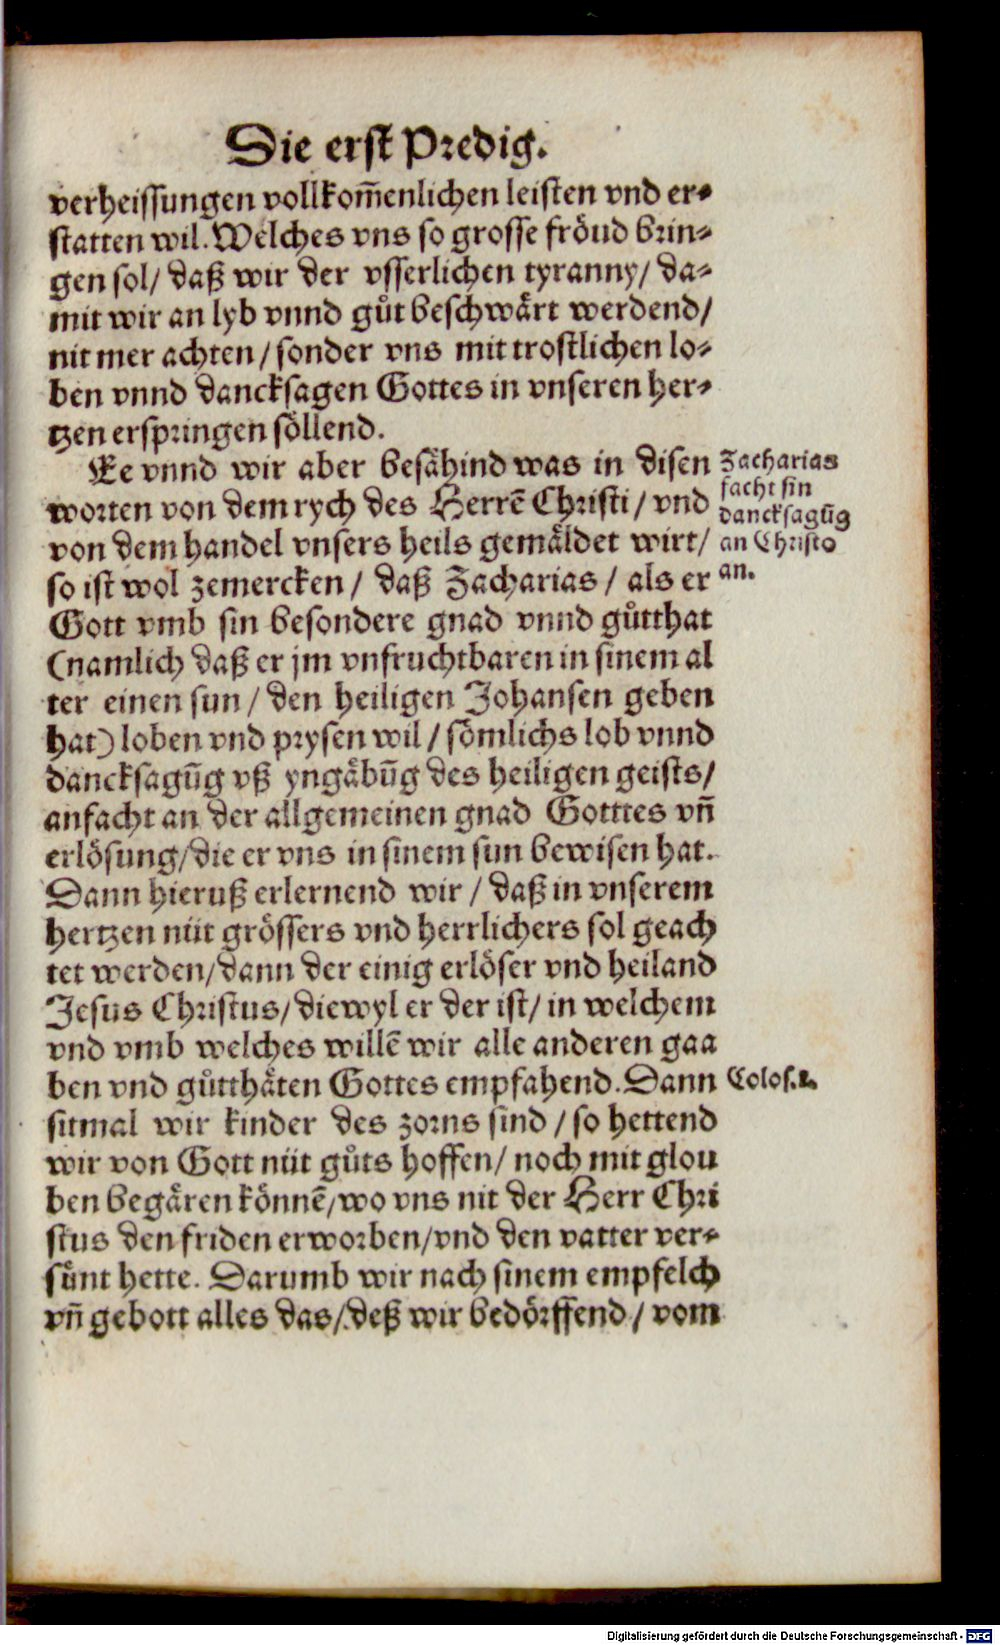 Die erst Predig.
verheissungen vollkom̃enlichen leisten vnd er⸗
statten wil. Welches vns so grosse fröud brin⸗
gen sol/ daß wir der vsserlichen tyranny/ da⸗
mit wir an lyb vnnd gůt beschwärt werdend/
nit mer achten/ sonder vns mit trostlichen lo⸗
ben vnnd dancksagen Gottes in vnseren her⸗
tzen erspringen söllend.
Ee vnnd wir aber besähind was in disen
worten von dem rych des Herrẽ Christi/ vnd
von dem handel vnsers heils gemäldet wirt/
so ist wol zemercken/ daß Zacharias/ als er
Gott vmb sin besondere gnad vnnd gůtthat
(namlich daß er jm vnfruchtbaren in sinem al
ter einen sun/ den heiligen Johansen geben
hat) loben vnd prysen wil/ sömlichs lob vnnd
dancksagũg vß yngäbũg des heiligen geists/
anfacht an der allgemeinen gnad Gotttes vñ
erlösung/ die er vns in sinem sun bewisen hat.
Dann hieruß erlernend wir/ daß in vnserem
hertzen nüt grössers vnd herrlichers sol geach
tet werden/ dann der einig erlöser vnd heiland
Jesus Christus/ diewyl er der ist/ in welchem
vnd vmb welches willẽ wir alle anderen gaa
ben vnd gůtthäten Gottes empfahend. Dann
sitmal wir kinder des zorns sind/ so hettend
wir von Gott nüt gůts hoffen/ noch mit glou
ben begären könnẽ/ wo vns nit der Herr Chri
stus den friden erworben/ vnd den vatter ver⸗
sünt hette. Darumb wir nach sinem empfelch
vñ gebott alles das/ deß wir bedörffend/ vom
Zacharias
facht sin
dancksagũg
an Christo
an.
Colos.1.
Digitalisierung gefördert durch die Deutsche Forschungsgemeinschaft - DFG